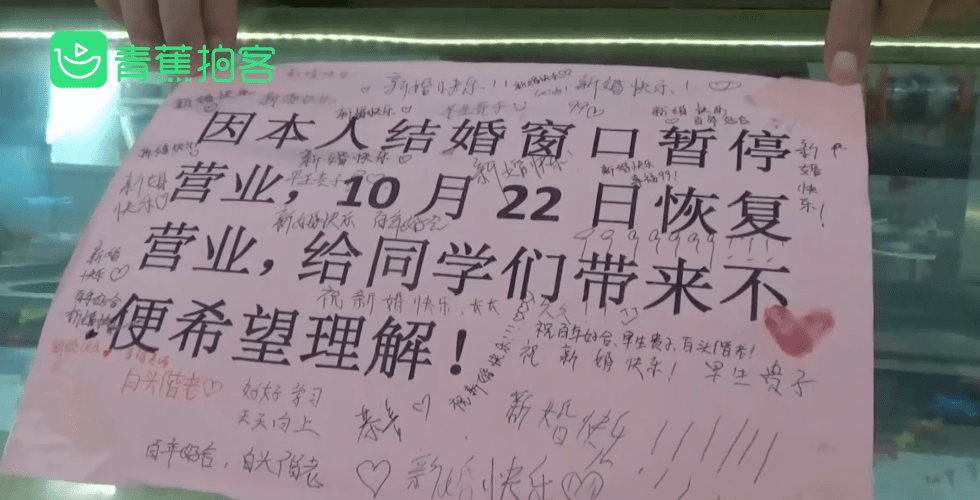 青蕉拍客
新婚快乐!!!
新婚快乐!
新婚快乐
新婚快乐
早生贵子
新婚快乐
百年好合
因本人结婚窗口暂停
新婚快乐!
新婚快乐
新婚快乐
新婚快乐
幸福99!
新婚快乐!
早生贵子
营业,10月22日恢复
新婚快乐
新婚快乐 百年好合
99999999!!!
营业,给同学们带来不
新婚快乐
百年好合
祝新婚快乐,长长久久
便希望理解!
祝百年好合、早生贵子、白头偕老!
祝新婚快乐!早生贵子
祝新婚快乐!!!
白头偕老
好好学习
天天向上
羡
新婚快乐!!!!!!!
百年好合,白头偕老
新婚快乐